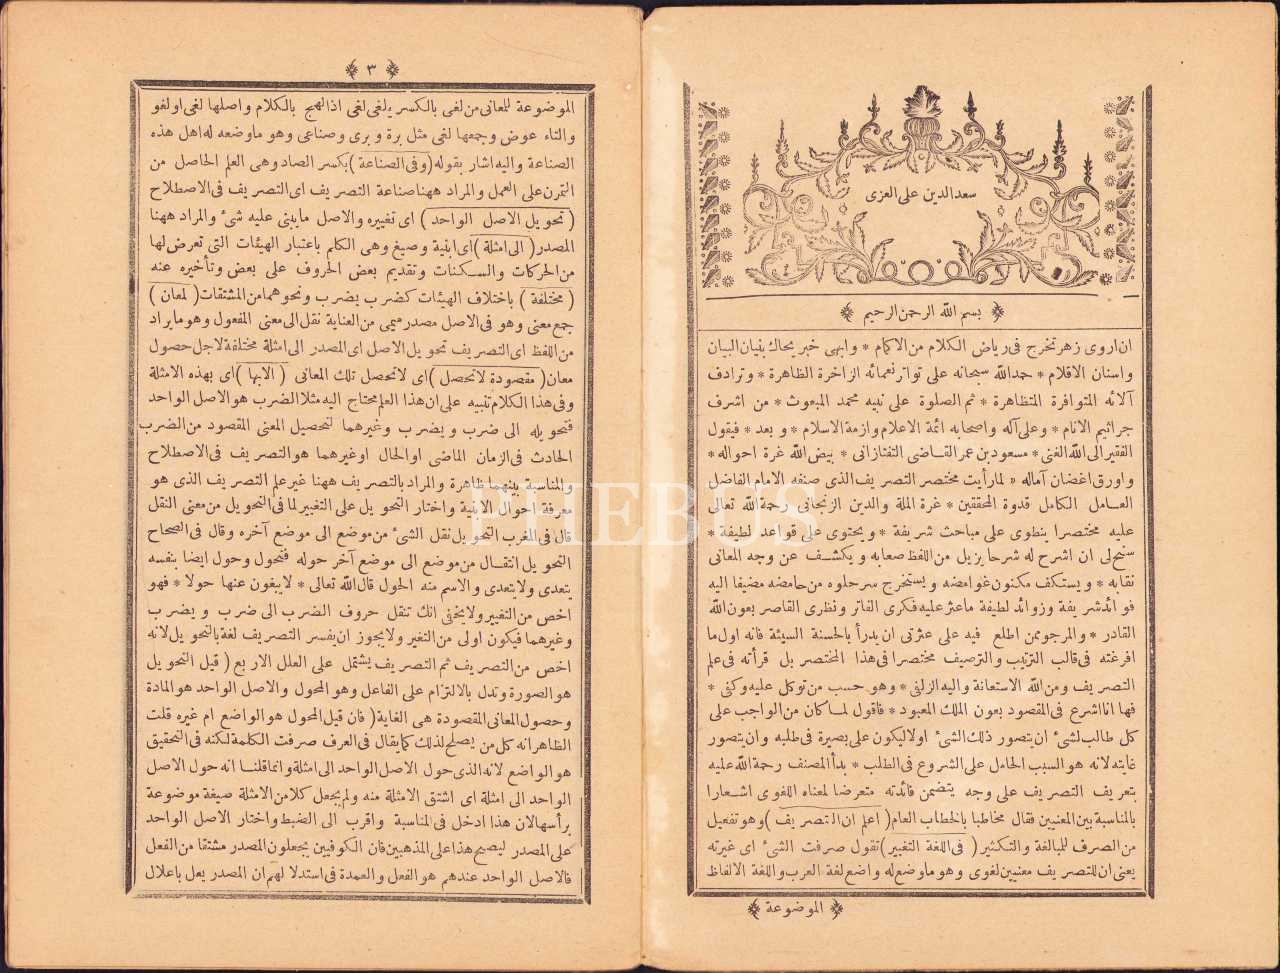 سعدالدین علی العزی
بسم الله الرحمن الرحیم
ان اروی زهر تخرج فی ریاض الکلام من الاکمام * وابهی خبر یحاك ببنان البیان
واسنان الاقلام * حمد الله سبحانه علی تواتر نعمائه الزاخرة الظاهرة * وترادف
آلائه المتوافرة المتظاهرة * ثم الصلوة علی نبیه محمد المبعوث * من اشرف
جراثیم الانام * وعلی آله واصحابه ائمة الاعلام وازمة الاسلام * وبعد * فیقول
الفقیر الی الله الغنی * مسعود بن عمر القاضی التفتازانی * بیض الله غرة احواله *
واورق اغصان آماله * لما رأیت مختصر التصریف الذی صنفه الامام الفاضل
العامل الکامل قدوة المحققین * غرة الملة والدین الزنجانی رحمة الله تعالی
علیه مختصرا ینطوی علی مباحث شریفة * ویحتوی علی قواعد لطیفة *
سنح لی ان اشرح له شرحا یزیل من اللفظ صعابه ویکشف عن وجه المعانی
نقابه * ویستکف مکنون غوامضه ویستخرج سر حلوه من حامضه مضیفا الیه
فوائد شریفة وزوائد لطیفة ما عثر علیه فکری الفاتر ونظری القاصر بعون الله
القادر * والمرجو ممن اطلع فیه علی عثرتی ان یدرأ بالحسنة السیئة فانه اول ما
افرغته فی قالب الترتیب والترصیف مختصرا فی هذا المختصر بل قرأته فی علم
التصریف ومن الله الاستعانة والیه الزلفی * وهو حسب من توکل علیه وکفی *
فها انا اشرع فی المقصود بعون الملك المعبود * فاقول لما کان من الواجب علی
کل طالب لشئ ان یتصور ذلك الشئ اولا لیکون علی بصیرة فی طلبه وان یتصور
غایته لانه هو السبب الحامل علی الشروع فی الطلب * بدأ المصنف رحمة الله علیه
بتعریف التصریف علی وجه یتضمن فائدته متعرضا لمعناه اللغوی اشعارا
بالمناسبة بین المعنیین فقال مخاطبا بالخطاب العام ( اعلم ان التصریف ) وهو تفعیل
من الصرف للمبالغة والتکثیر ( فی اللغة التغییر ) تقول صرفت الشئ ای غیرته
یعنی ان للتصریف معنیین لغوی وهو ما وضع له واضع لغة العرب واللغة الالفاظ
الموضوعة
٣
الموضوعة للمعانی من لغی بالکسر یلغی لغی اذا لهج بالکلام واصلها لغی او لغو
والتاء عوض وجمعها لغی مثل برة وبری وصناعی وهو ما وضعه له اهل هذه
الصناعة والیه اشار بقوله ( وفی الصناعة ) بکسر الصاد وهی العلم الحاصل من
التمرن علی العمل والمراد ههنا صناعة التصریف ای التصریف فی الاصطلاح
( تحویل الاصل الواحد ) ای تغییره والاصل ما یبنی علیه شئ والمراد ههنا
المصدر ( الی امثلة ) ای ابنیة وصیغ وهی الکلم باعتبار الهیئات التی تعرض لها
من الحرکات والسکنات وتقدیم بعض الحروف علی بعض وتأخیره عنه
( مختلفة ) باختلاف الهیئات کضرب یضرب ونحوهما من المشتقات ( لمعان )
جمع معنی وهو فی الاصل مصدر میمی من العنایة نقل الی معنی المفعول وهو ما یراد
من اللفظ ای التصریف تحویل الاصل ای المصدر الی امثلة مختلفة لاجل حصول
معان ( مقصودة لا تحصل ) ای لا تحصل تلك المعانی ( الا بها ) ای بهذه الامثلة
وفی هذا الکلام تنبیه علی ان هذا العلم محتاج الیه مثلا الضرب هو الاصل الواحد
فتحویله الی ضرب ویضرب وغیرهما لتحصیل المعنی المقصود من الضرب
الحادث فی الزمان الماضی او الحال او غیرهما هو التصریف فی الاصطلاح
والمناسبة بینهما ظاهرة والمراد بالتصریف ههنا غیر علم التصریف الذی هو
معرفة احوال الابنیة واختار التحویل علی التغییر لما فی التحویل من معنی النقل
قال فی المغرب التحویل نقل الشئ من موضع الی موضع آخره وقال فی الصحاح
التحویل انتقال من موضع الی موضع آخر حوله فتحول وحول ایضا بنفسه
یتعدی ولا یتعدی والاسم منه الحول قال الله تعالی * لا یبغون عنها حولا * فهو
اخص من التغییر ولا یخفی انك تنقل حروف الضرب الی ضرب ویضرب
وغیرهما فیکون اولی من التغیر ولا یجوز ان یفسر التصریف لغة بالتحویل لانه
اخص من التصریف ثم التصریف یشتمل علی العلل الاربع ( قیل التحویل
هو الصورة وتدل بالالتزام علی الفاعل وهو المحول والاصل الواحد هو المادة
وحصول المعانی المقصودة هی الغایة ( فان قیل المحول هو الواضع ام غیره قلت
الظاهر انه کل من یصلح لذلك کما یقال فی العرف صرفت الکلمة لکنه فی التحقیق
هو الواضع لانه الذی حول الاصل الواحد الی امثلة وانما قلنا انه حول الاصل
الواحد الی امثلة ای اشتق الامثلة منه ولم یجعل کلا من الامثلة صیغة موضوعة
برأسها لان هذا ادخل فی المناسبة واقرب الی الضبط واختار الاصل الواحد
علی المصدر لیصح هذا علی المذهبین فان الکوفیین یجعلون المصدر مشتقا من الفعل
فالاصل الواحد عندهم هو الفعل والعمدة فی استدلالهم ان المصدر یعل باعلال
PHEBUS